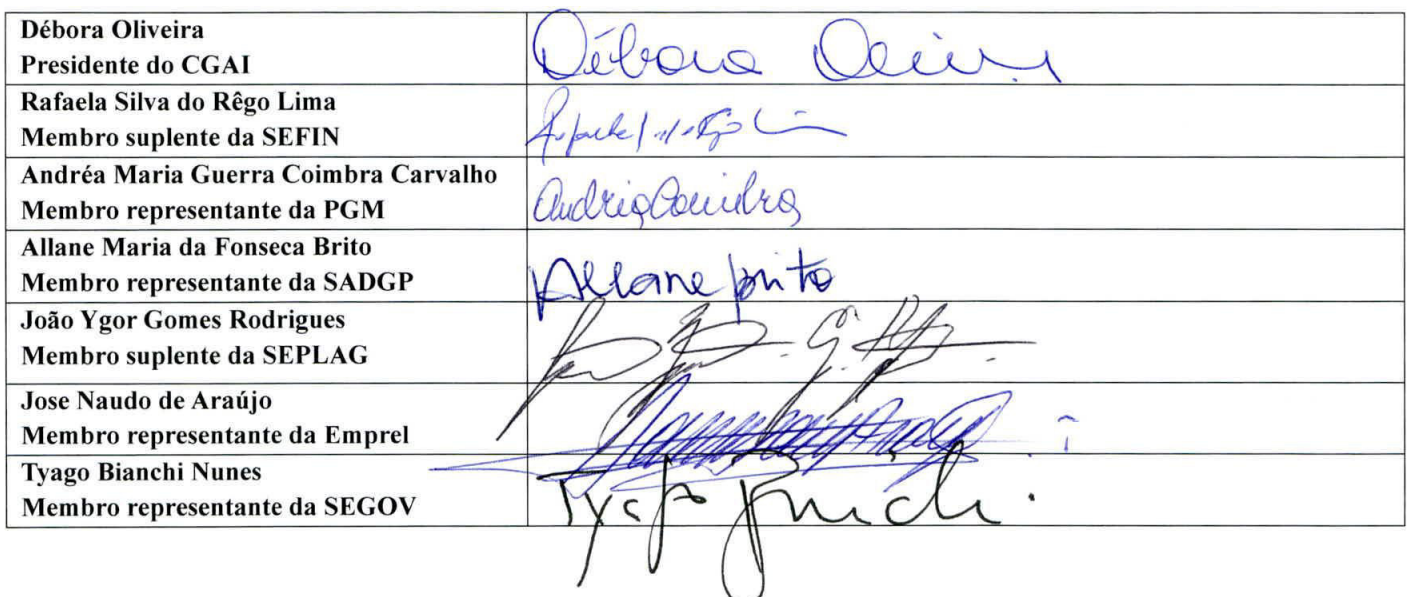 Débora Oliveira
Presidente do CGAI
Débora Oliveira
Rafaela Silva do Rêgo Lima
Membro suplente da SEFIN
Andréa Maria Guerra Coimbra Carvalho
Membro representante da PGM
Andréa Coimbra
Allane Maria da Fonseca Brito
Membro representante da SADGP
Allane Brito
João Ygor Gomes Rodrigues
Membro suplente da SEPLAG
Jose Naudo de Araújo
Membro representante da Emprel
Tyago Bianchi Nunes
Membro representante da SEGOV
Tyago Bianchi